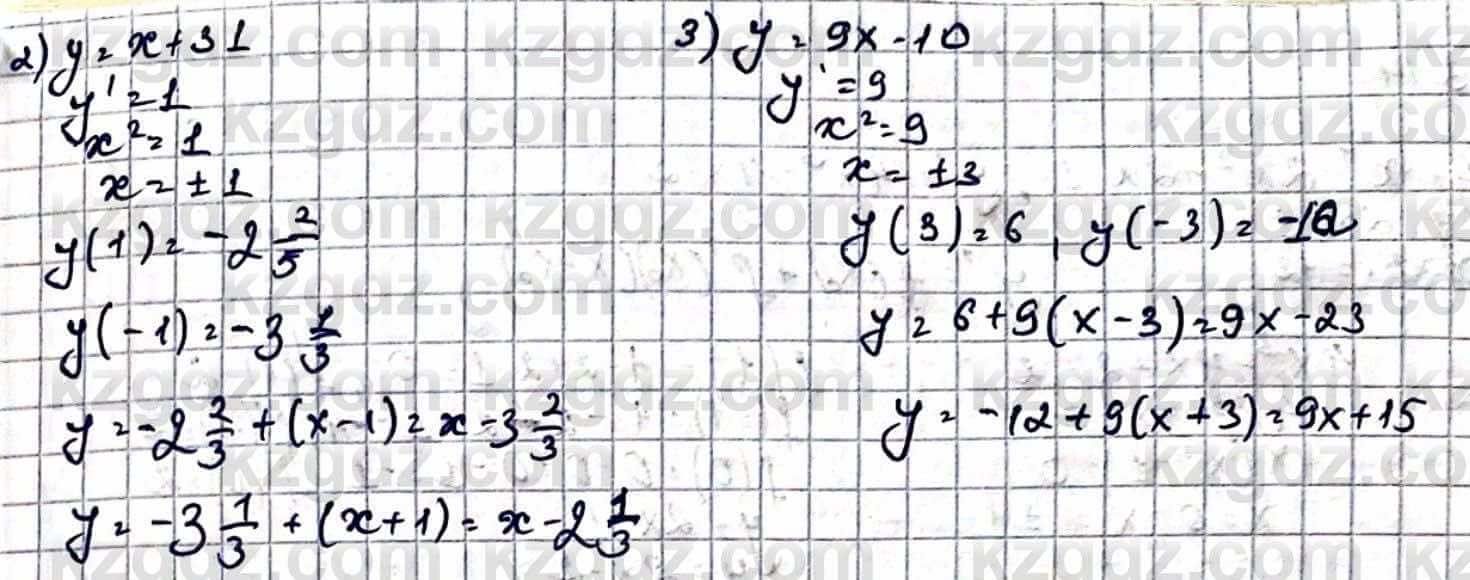 2) y = x + 31
y' = 1
x² = 1
x = ± 1
y(1) = -2 2/5
y(-1) = -3 1/3
y = -2 2/3 + (x - 1) = x - 3 2/3
y = -3 1/3 + (x + 1) = x - 2 1/3
3) y = 9x - 10
y' = 9
x² = 9
x = ±3
y(3) = 6, y(-3) = -12
y = 6 + 9(x - 3) = 9x - 23
y = -12 + 9(x + 3) = 9x + 15
kzgdz.com